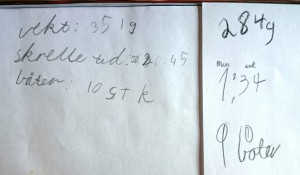 vekt: 351g
skrelle tid: 2:45
båter: 10 stk
284g
min sek
1:34
9 båter